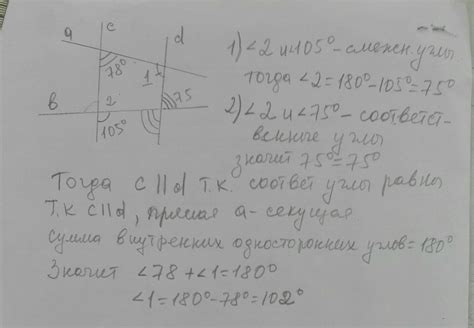 a
c
d
78°
1
b
2
75
105°
1) ∠2 и 105° - смежн. углы
тогда ∠2 = 180° - 105° = 75°
2) ∠2 и ∠75° - соответст-
венные углы
значит 75° = 75°
Тогда c || d т.к. соответ углы равны
Т.к c || d, прямая a - секущая
сумма внутренних односторонних углов = 180°
Значит ∠78 + ∠1 = 180°
∠1 = 180° - 78° = 102°